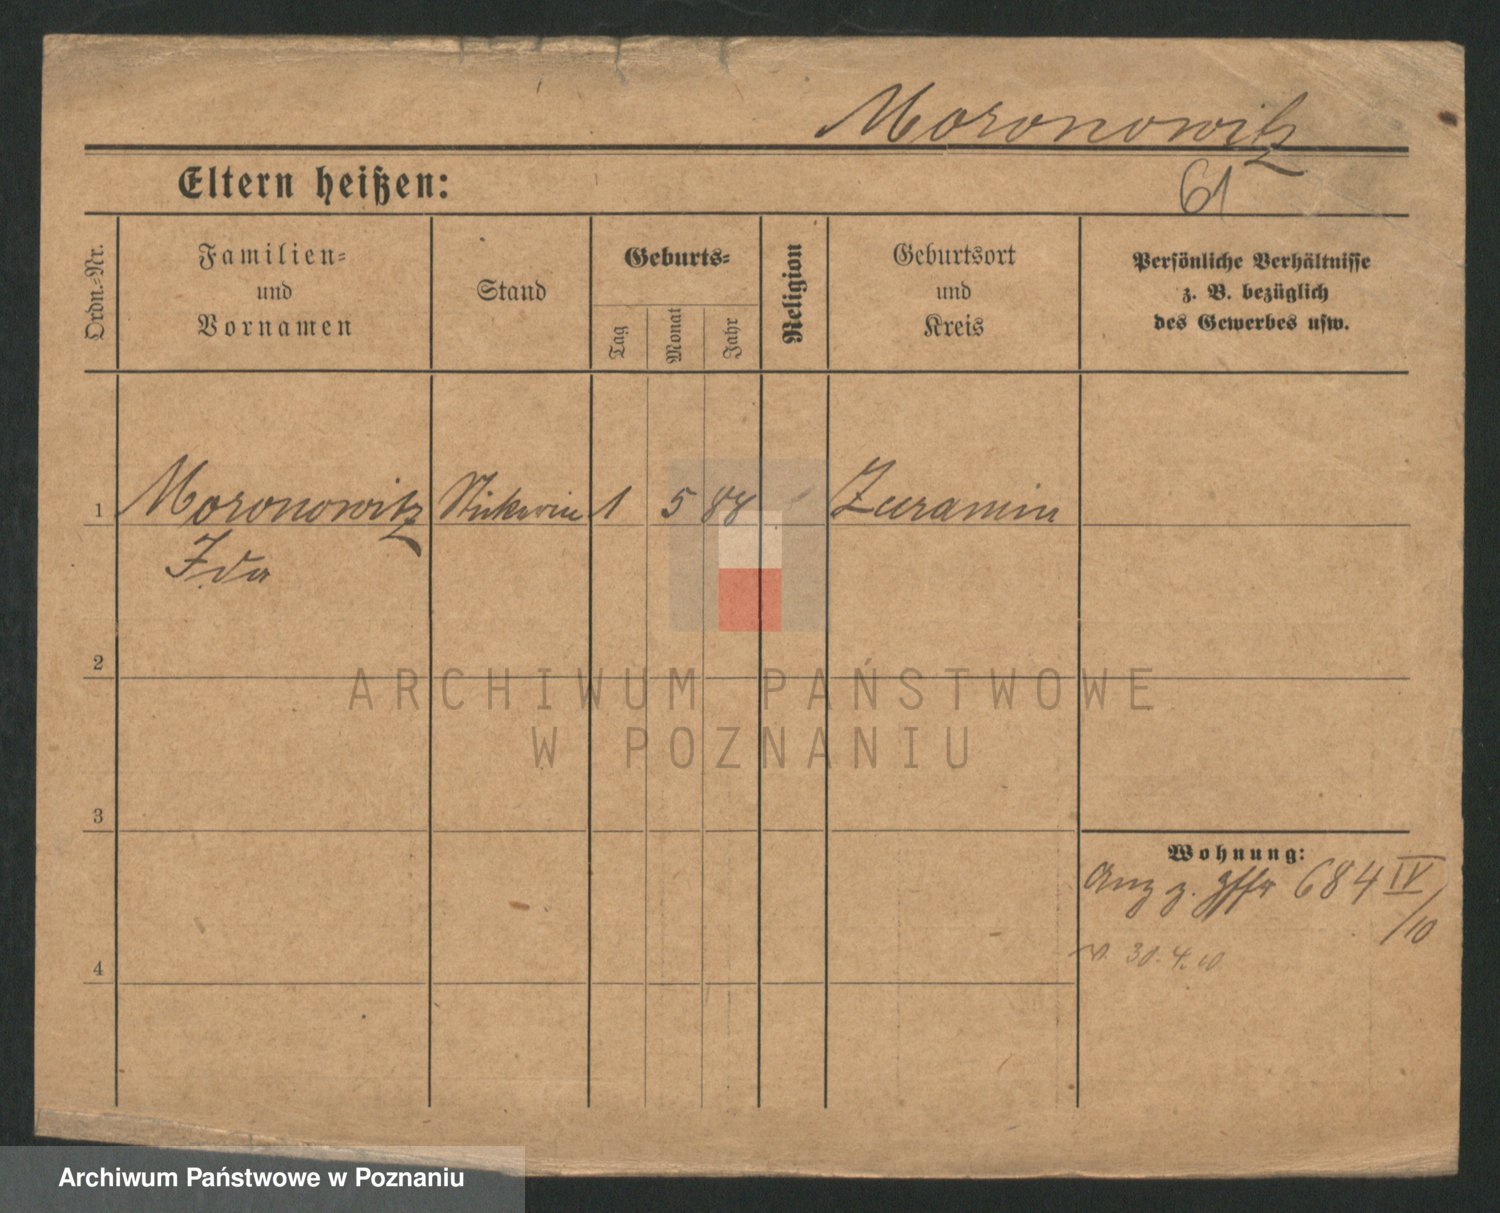 Moronowitz
61
Eltern heißen:
Ordn.-Nr.
Familien-
und
Vornamen
Stand
Geburts-
Tag
Monat
Jahr
Religion
Geburtsort
und
Kreis
Persönliche Verhältnisse
z. B. bezüglich
des Gewerbes usw.
1 Moronowitz 1 5 88 Zuramin
Ida
2
ARCHIWUM PAŃSTWOWE
W POZNANIU
3
Wohnung:
684 IV
/10
4
30.4.10
Archiwum Państwowe w Poznaniu